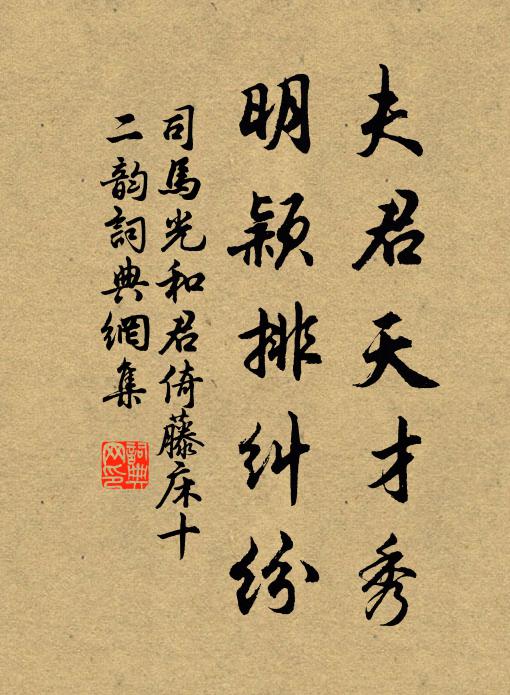 夫君天才秀
明颖排纠纷
司馬光和君倚藤床十
二韵詞典網集
詞典
网印